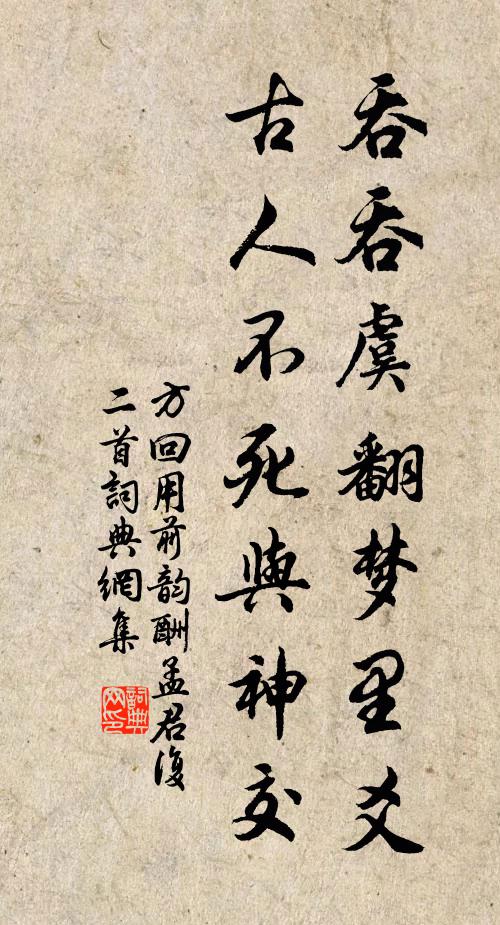 吞吞虞翻梦里爻
古人不死與神交
方回用前韵酬孟君復
二首詞典網集
詞典
网印